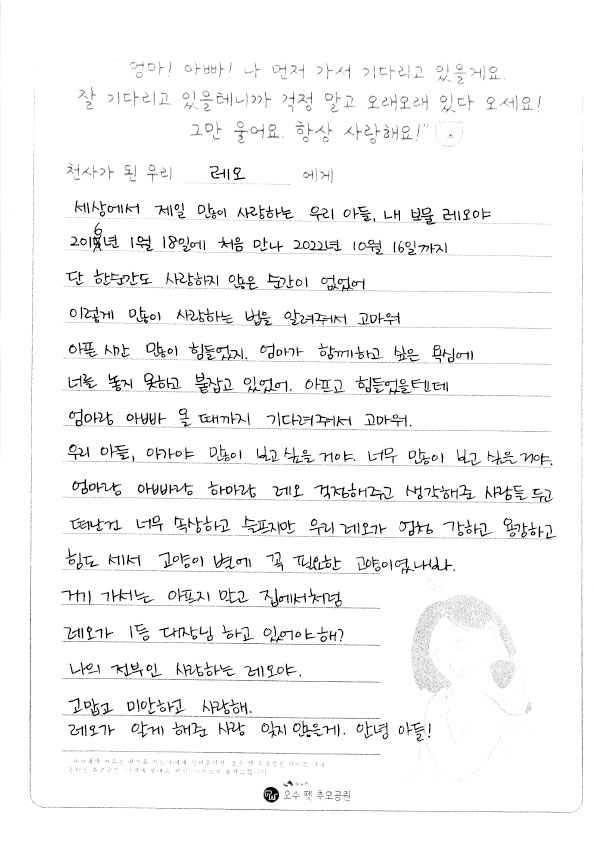 엄마! 아빠! 나 먼저 가서 기다리고 있을게요.
잘 기다리고 있을테니까 걱정 말고 오래오래 있다 오세요!
그만 울어요. 항상 사랑해요!"
천사가 된 우리 레오 에게
세상에서 제일 많이 사랑하는 우리 아들, 내 보물 레오야
2016년 1월 18일에 처음 만나 2022년 10월 16일까지
단 한순간도 사랑하지 않은 순간이 없었어
이렇게 많이 사랑하는 법을 알려줘서 고마워
아픈 시간 많이 힘들었지. 엄마가 함께하고 싶은 욕심에
너를 놓지 못하고 붙잡고 있었어. 아프고 힘들었을텐데
엄마랑 아빠 올 때까지 기다려줘서 고마워.
우리 아들, 아가야 많이 보고싶을거야. 너무 많이 보고 싶을거야.
엄마랑 아빠랑 하마랑 레오 걱정해주고 생각해준 사람들 두고
떠난건 너무 속상하고 슬프지만 우리 레오가 엄청 강하고 용감하고
힘도 세서 고양이 별에 꼭 필요한 고양이였나봐.
거기 가서는 아프지 말고 집에서처럼
레오가 1등 대장님 하고 있어야해?
나의 전부인 사랑하는 레오야.
고맙고 미안하고 사랑해.
레오가 알게 해준 사랑 잊지 않을게. 안녕 아들!
오수 펫 추모공원